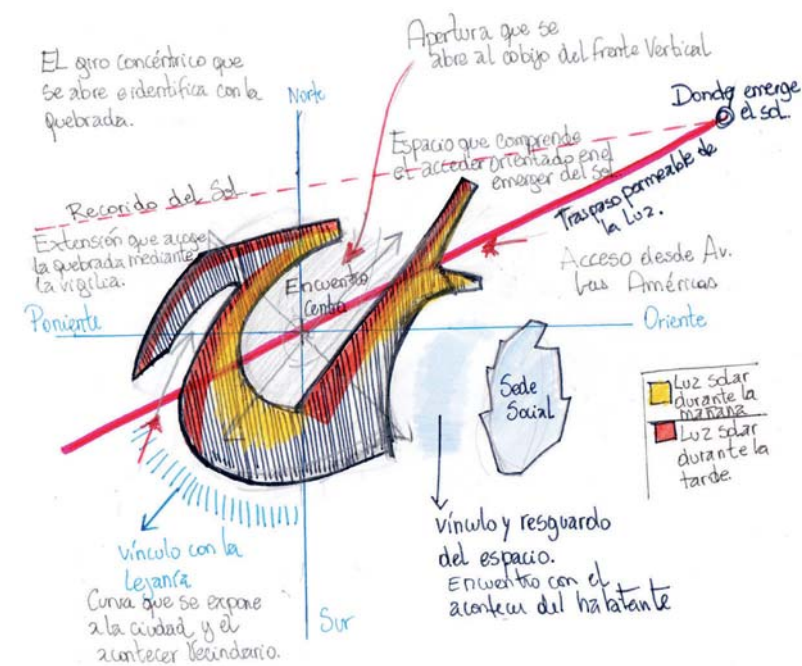 El giro concéntrico que
se abre e identifica con la
quebrada.
Apertura que se
abre al cobijo del frente Vertical
Norte
Donde emerge
el sol.
Espacio que comprende
el acceder orientado en el
emerger del sol.
Recorido del Sol
Traspaso permeable de
la Luz.
Extensión que acoge
la quebrada mediante
la vigilia.
Encuentro
Central
Acceso desde Av.
Las Américas
Poniente
Oriente
Sede
Social
Luz solar
durante la
mañana
Luz solar
durante la
tarde.
vínculo con la
Lejanía
Curva que se expone
a la ciudad y el
acontecer Vecindario.
Sur
vínculo y resguardo
del espacio.
Encuentro con el
acontecer del habitante